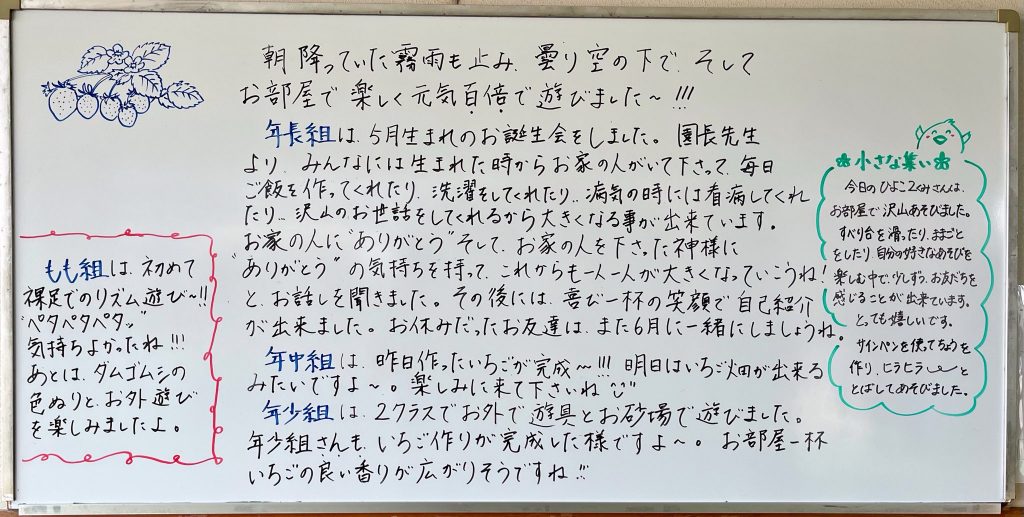 朝降っていた霧雨も止み、曇り空の下で、そして
お部屋で楽しく元気百倍で遊びました〜!!!
年長組は、5月生まれのお誕生会をしました。園長先生
より、みんなには生まれた時からお家の人がいて下さって、毎日
ご飯を作ってくれたり、洗濯をしてくれたり、病気の時には看病してくれ
たり…沢山のお世話をしてくれるから大きくなる事が出来ています。
お家の人に"ありがとう"そして、お家の人を下さった神様に
"ありがとう"の気持ちを持って、これからも一人一人が大きくなっていこうね!
と、お話しを聞きました。その後には、喜び一杯の笑顔で自己紹介
が出来ました。お休みだったお友達は、また6月に一緒にしましょうね。
年中組は、昨日作ったいちごが完成〜!!! 明日はいちご畑が出来る
みたいですよ〜。楽しみに来て下さいね
年少組は、2クラスでお外で遊具とお砂場で遊びました。
年少組さんも、いちご作りが完成した様ですよ〜。お部屋一杯
いちごの良い香りが広がりそうですね!!
もも組は、初めて
裸足でのリズム遊び〜!!
"ペタペタペタッ"
気持ちよかったね!!!
あとは、ダムゴムシの
色ぬりと、お外遊び
を楽しみましたよ。
小さな集い
今日のひよこ2くみさんは、
お部屋で沢山あそびました。
すべり台を滑ったり、ままごと
をしたり、自分の好きなあそびを
楽しむ中で、少しずつ、お友だちを
感じることが出来ています。
とっても嬉しいです。
サインペンを使ってちょうを
作り、ヒラヒラ〜と
とばしてあそびました。